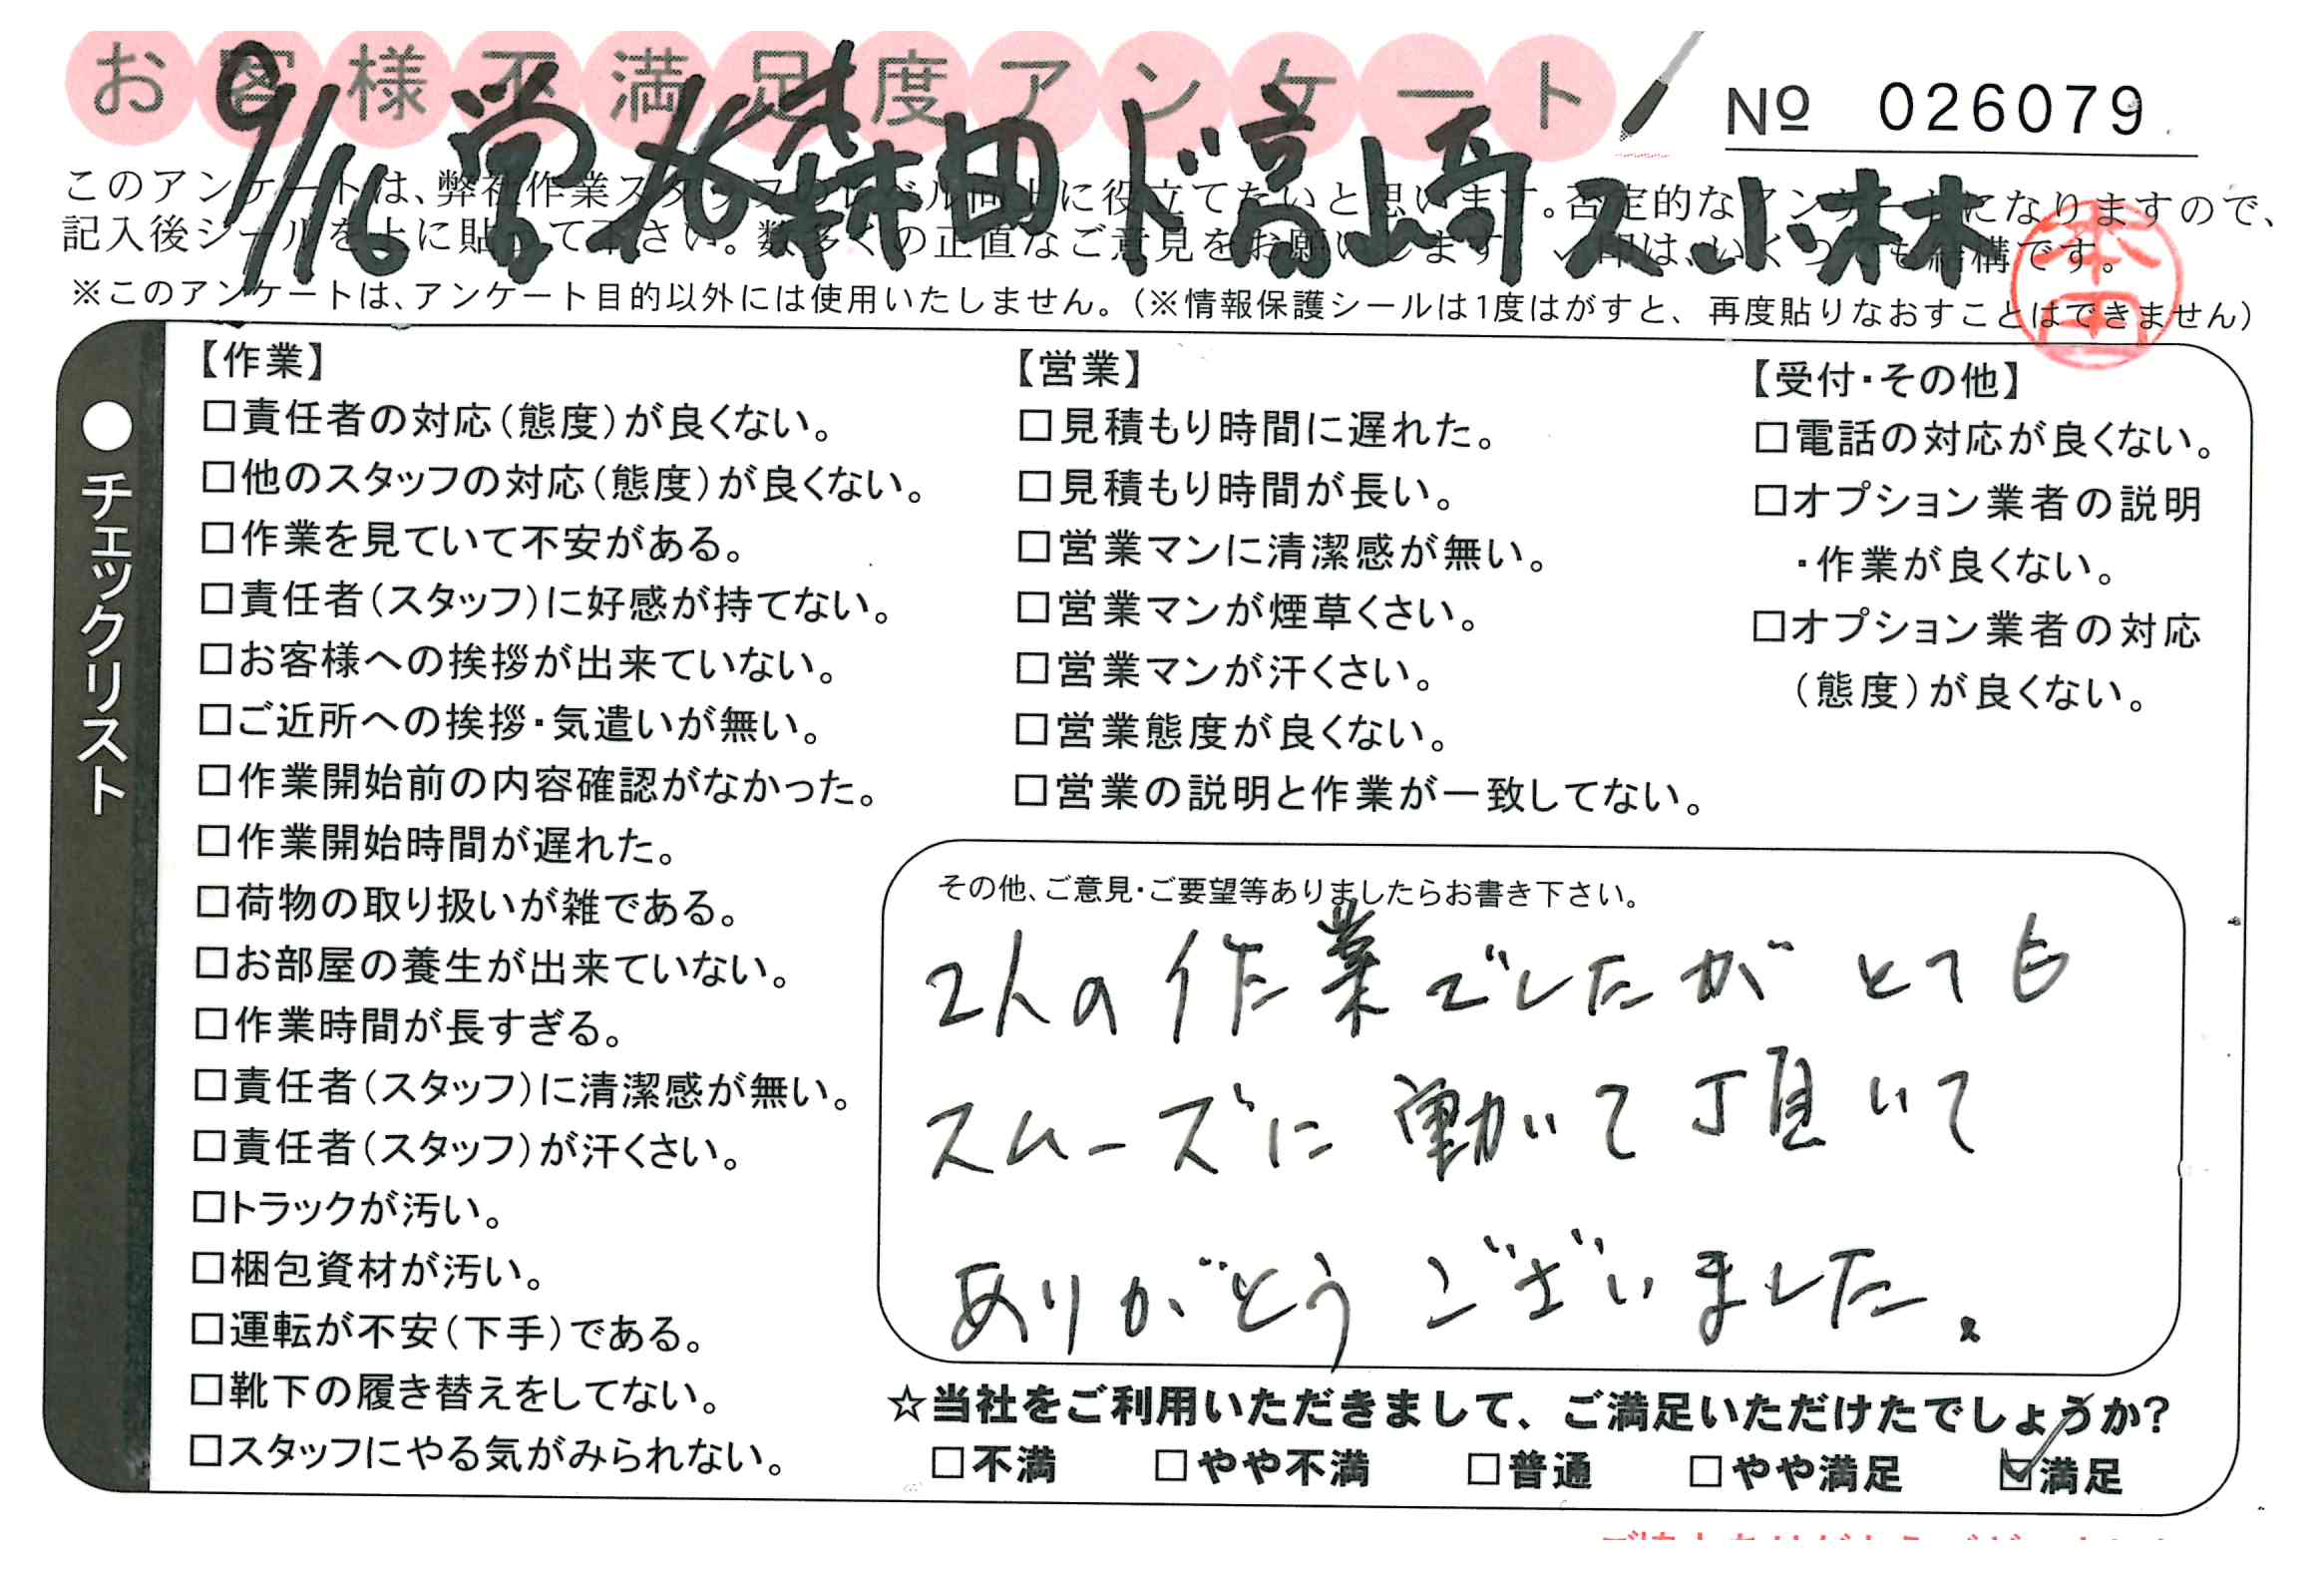 お客様不満足度アンケート
№ 026079
9/16 営 ド高崎 ス小林
このアンケートは、弊社作業スタッフのレベル向上に役立てたいと思います。否定的なアンケートになりますので、
記入後シールを上に貼って下さい。数多くの正直なご意見をお願いします。✓印は、いくつでも結構です。
※このアンケートは、アンケート目的以外には使用いたしません。(※情報保護シールは1度はがすと、再度貼りなおすことはできません)
●チェックリスト
【作業】
□責任者の対応(態度)が良くない。
□他のスタッフの対応(態度)が良くない。
□作業を見ていて不安がある。
□責任者(スタッフ)に好感が持てない。
□お客様への挨拶が出来ていない。
□ご近所への挨拶・気遣いが無い。
□作業開始前の内容確認がなかった。
□作業開始時間が遅れた。
□荷物の取り扱いが雑である。
□お部屋の養生が出来ていない。
□作業時間が長すぎる。
□責任者(スタッフ)に清潔感が無い。
□責任者(スタッフ)が汗くさい。
□トラックが汚い。
□梱包資材が汚い。
□運転が不安(下手)である。
□靴下の履き替えをしてない。
□スタッフにやる気がみられない。
【営業】
□見積もり時間に遅れた。
□見積もり時間が長い。
□営業マンに清潔感が無い。
□営業マンが煙草くさい。
□営業マンが汗くさい。
□営業態度が良くない。
□営業の説明と作業が一致してない。
【受付・その他】
□電話の対応が良くない。
□オプション業者の説明
・作業が良くない。
□オプション業者の対応
(態度)が良くない。
その他、ご意見・ご要望等ありましたらお書き下さい。
2人の作業でしたがとても
スムーズに動いて頂いて
ありがとうございました。
☆当社をご利用いただきまして、ご満足いただけたでしょうか?
□不満 □やや不満 □普通 □やや満足 ☑満足